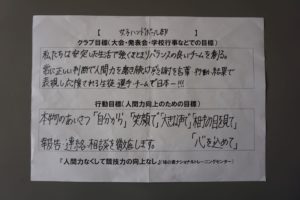 【 女子ハンドボール部 】
クラブ目標(大会・発表会・学校行事などでの目標)
私たちは安定した生活で強くまとまりバランスの良いチームを創る。
常に正しい判断で人間力を磨き続け感謝を言葉・行動・結果で
表現し応援される生徒・選手・チームで日本一!!!
行動目標(人間力向上のための目標)
本物のあいさつ「自分から」「笑顔で」「大きな声で」「相手の目を見て」
報告・連絡・相談を徹底します。 「心を込めて」
『人間力なくして競技力の向上なし』(味の素ナショナルトレーニングセンター)